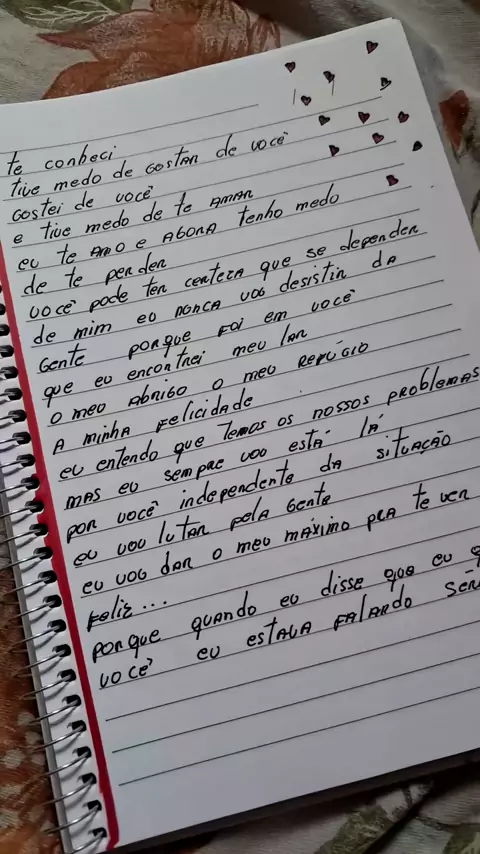 te conheci
tive medo de gostar de você
gostei de você
e tive medo de te amar
eu te amo e agora tenho medo
de te perder
você pode ter certeza que se depender
de mim eu nunca vou desistir da
gente porque foi em você
que eu encontrei meu lar
o meu abrigo o meu refúgio
a minha felicidade
eu entendo que temos os nossos problemas
mas eu sempre vou está lá
por você independente da situação
eu vou lutar pela gente
eu vou dar o meu máximo pra te ver
feliz...
porque quando eu disse que eu
você eu estava falando